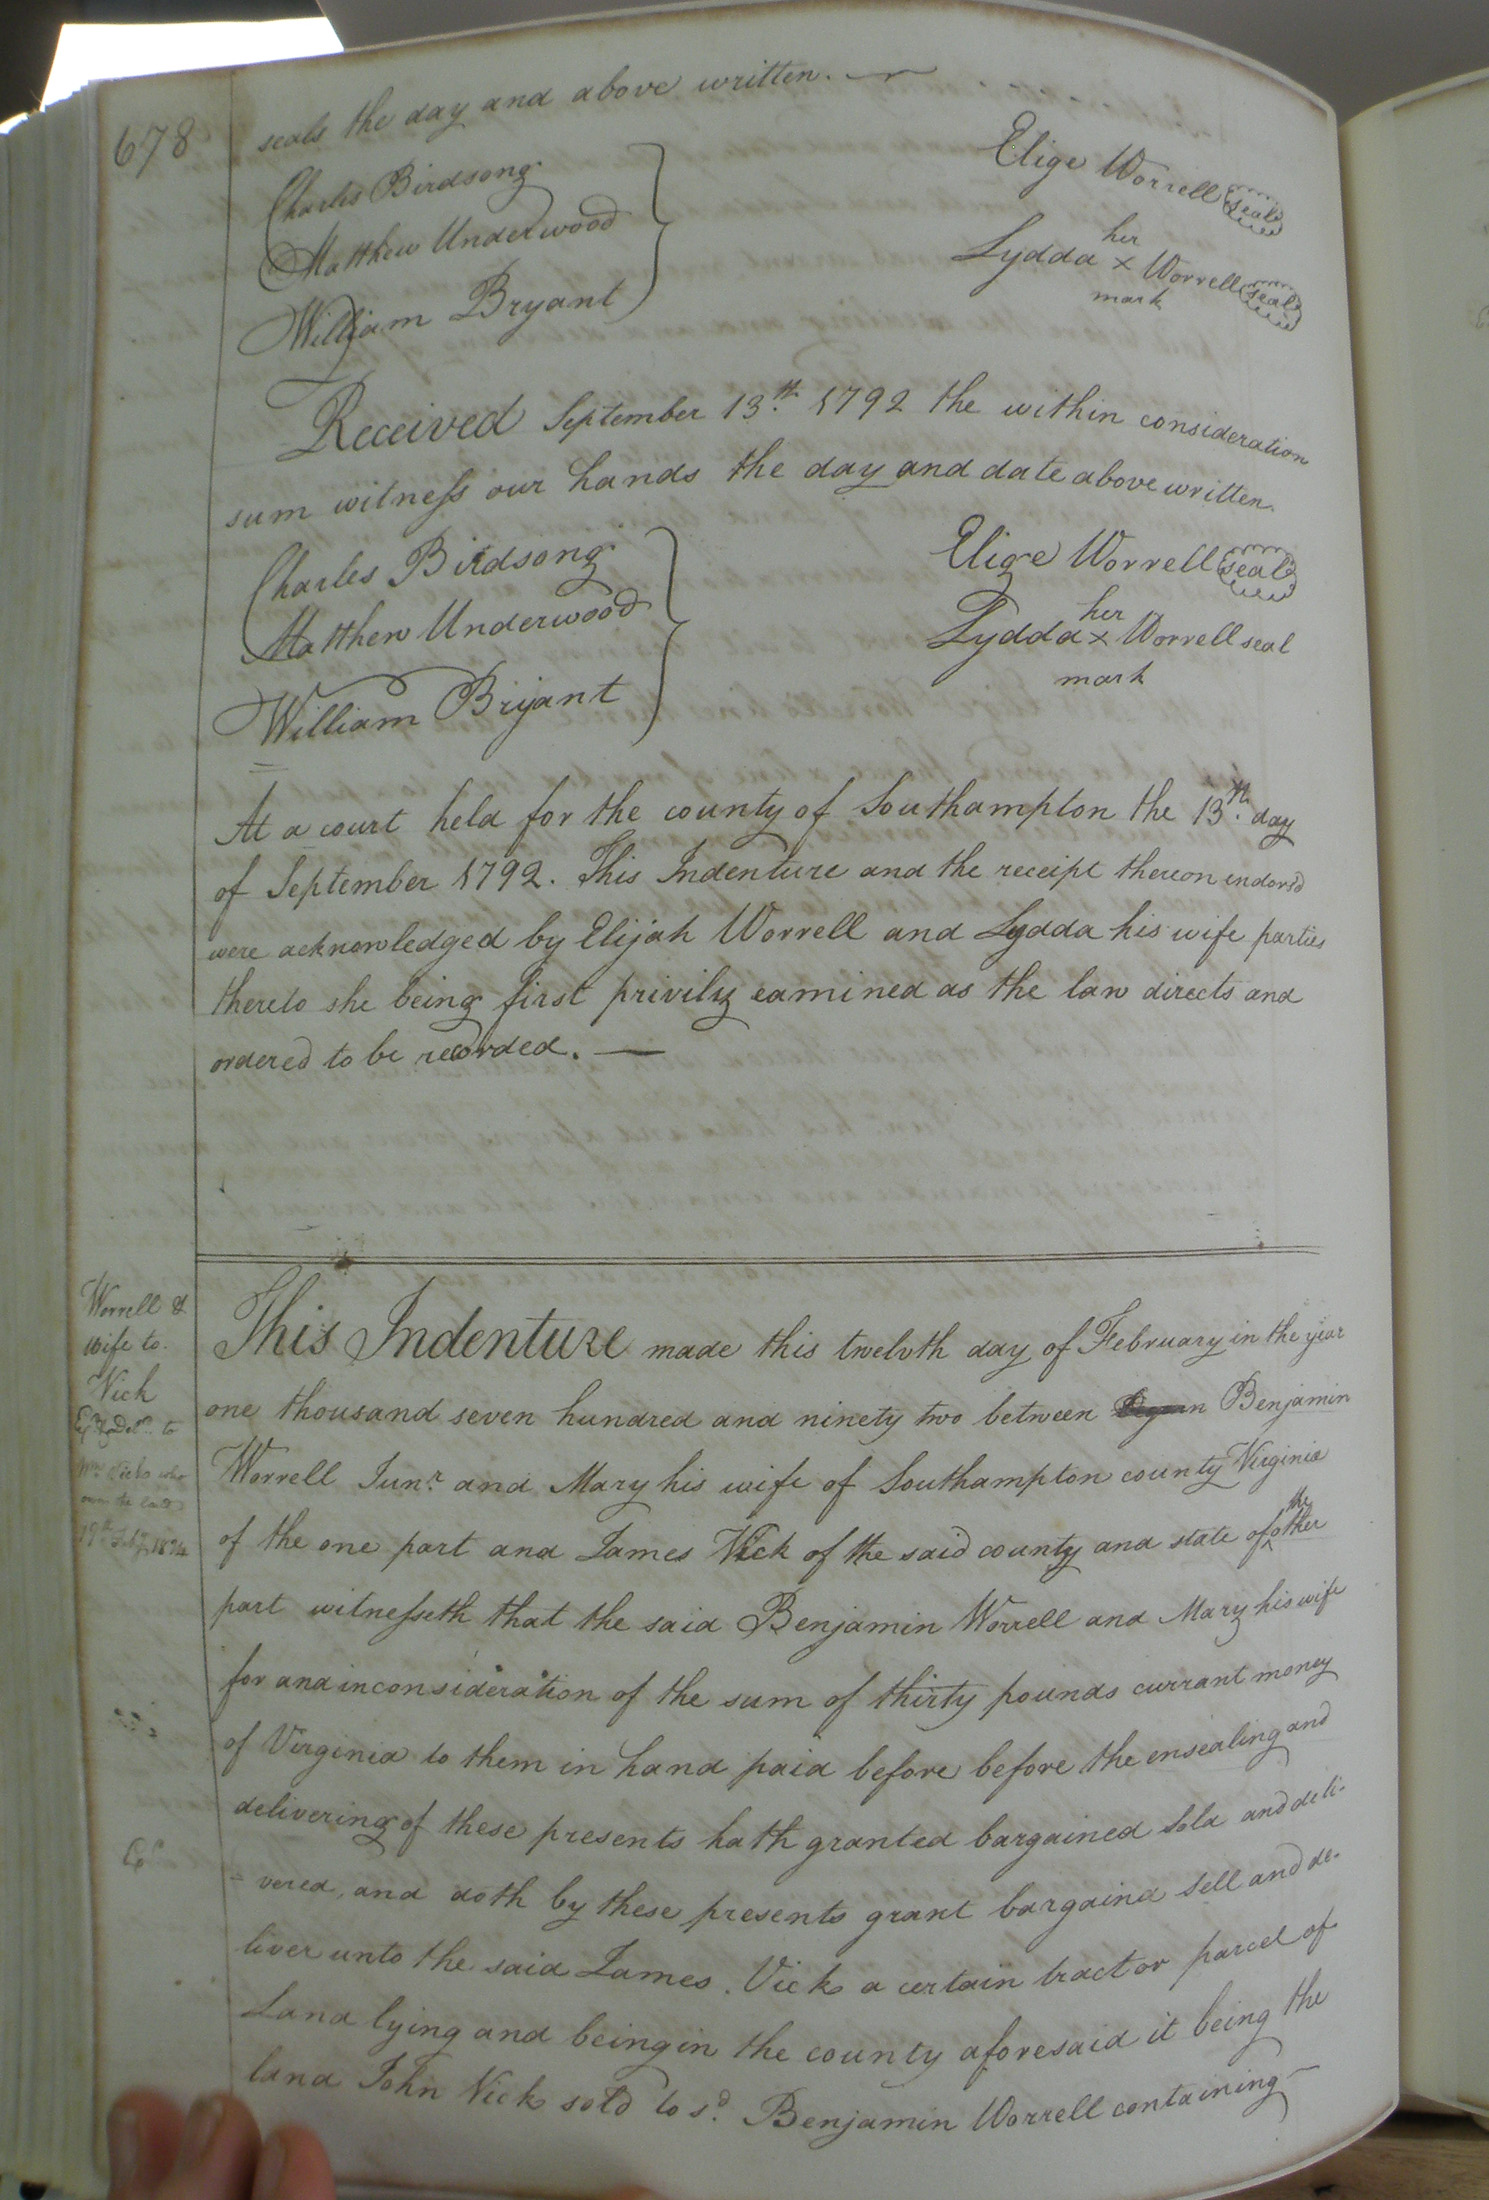 678
seals the day and above written.
Charles Birdsong
Matthew Underwood
William Bryant
Elige Worrell seal
her
Lydda x Worrell seal
mark
Received September 13.th 1792 the within consideration
sum witness our hands the day and date above written.
Charles Birdsong
Matthew Underwood
William Bryant
Elige Worrell seal
her
Lydda x Worrell seal
mark
At a court held for the county of Southampton the 13.th day
of September 1792. This Indenture and the receipt thereon endorsd
were acknowledged by Elijah Worrell and Lydda his wife parties
thereto she being first privily eamined as the law directs and
ordered to be recorded. —
Worrell &
wife to.
Vick
Exd. & Deld. to
Wm. Vicks who
own the land
19th Feby. 1874
This Indenture made this twelvth day of February in the year
one thousand seven hundred and ninety two between Benjamin
Worrell Junr. and Mary his wife of Southampton county Virginia
of the one part and James Vick of the said county and state of the other
part witnesseth that the said Benjamin Worrell and Mary his wife
for and in consideration of the sum of thirty pounds currant money
of Virginia to them in hand paid before before the ensealing and
delivering of these presents hath granted bargained sold and deli-
vered, and doth by these presents grant bargaind sell and de-
liver unto the said James. Vick a certain tract or parcel of
Land lying and being in the county aforesaid it being the
land John Vick sold to sd. Benjamin Worrell containing